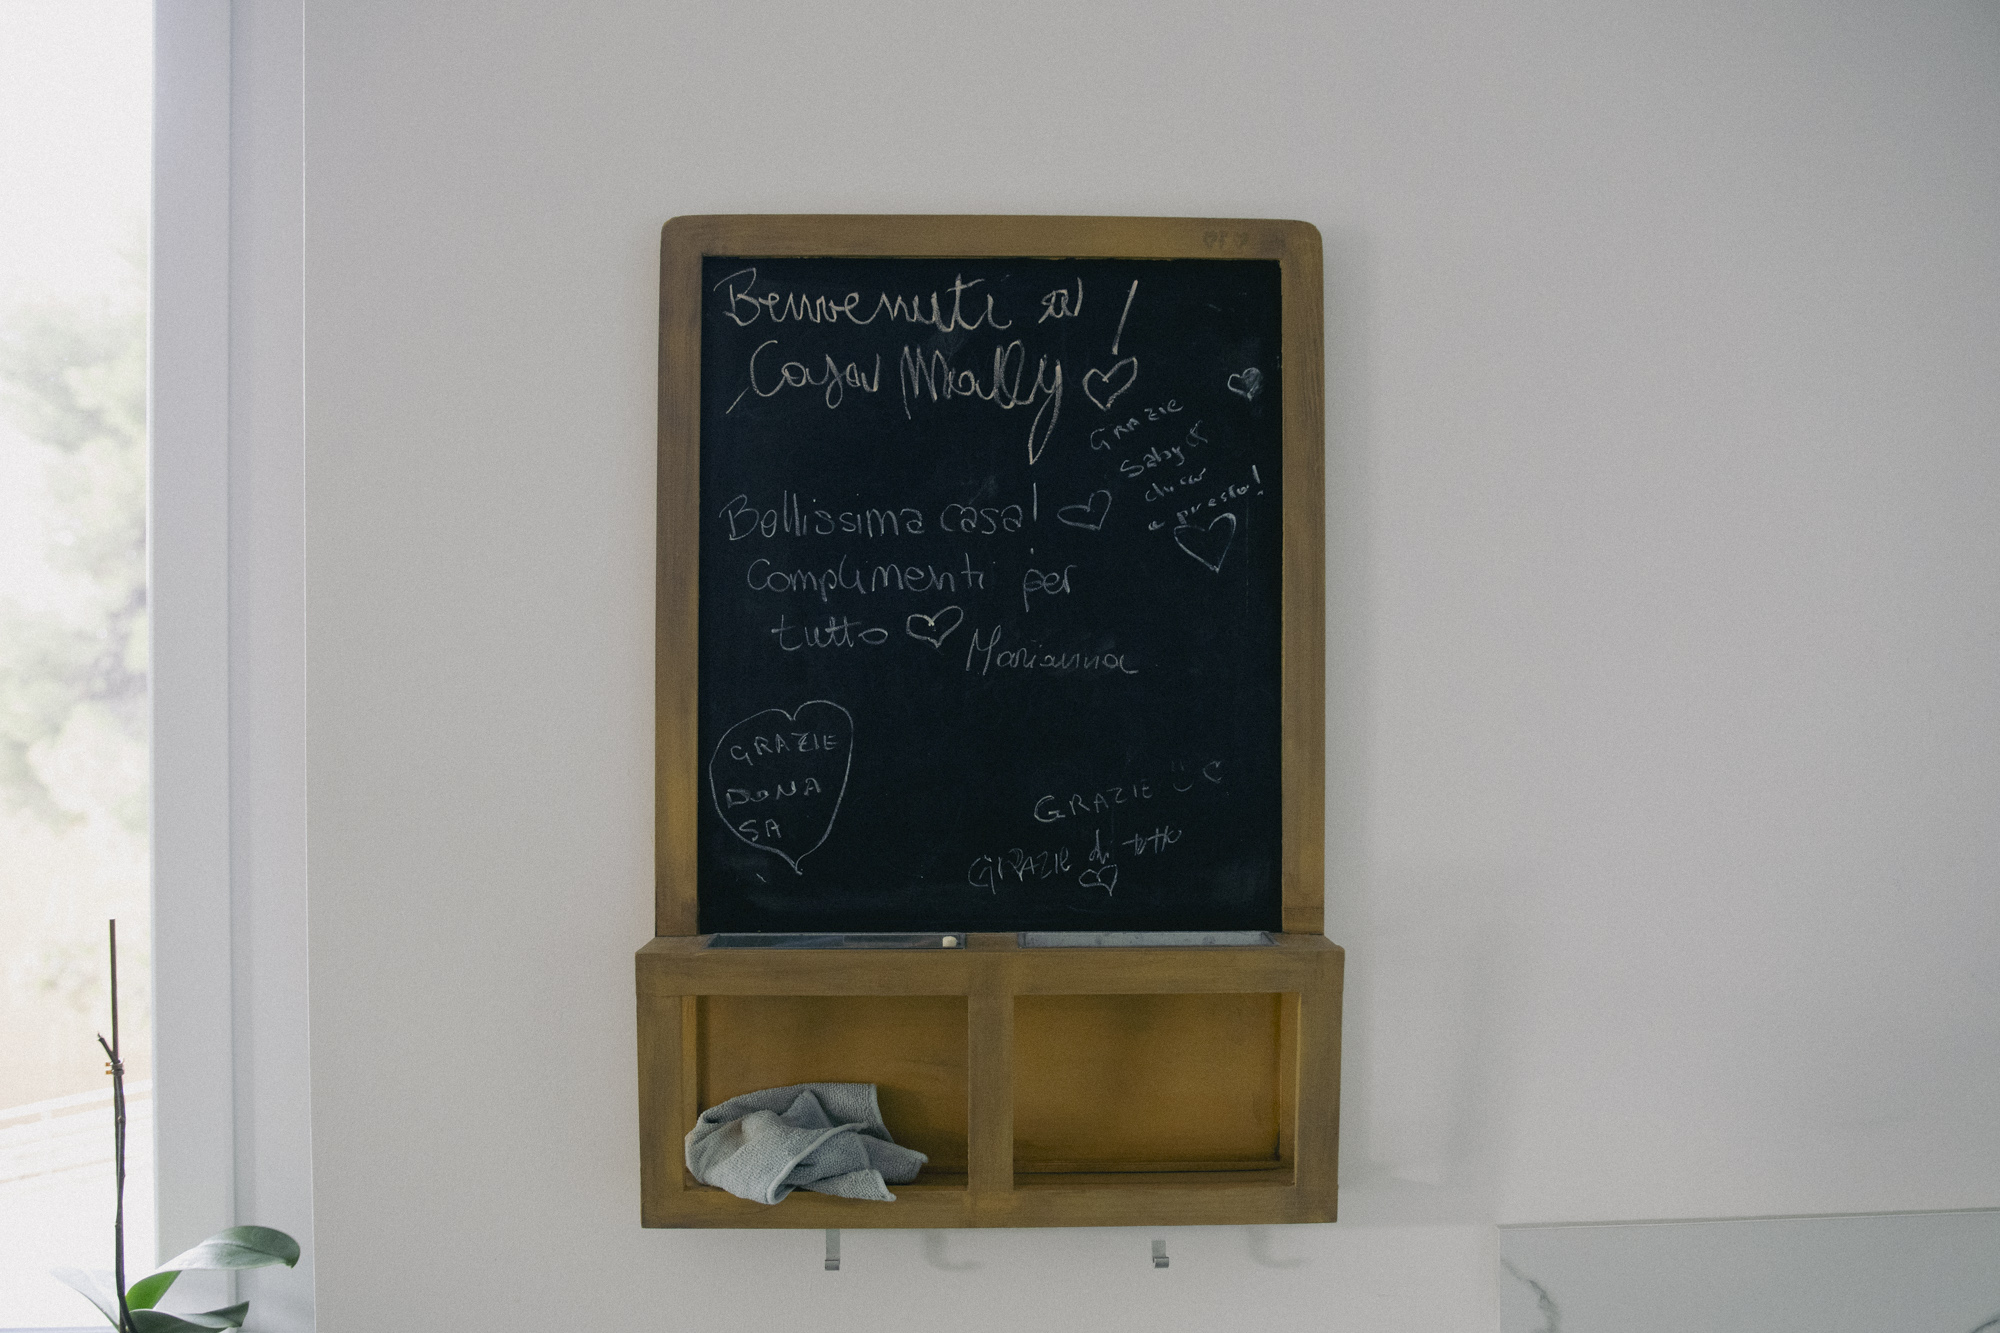 Benvenuti a
Casa Mally!
GRAZIE
Saby &
a presto!
Bellissima casa!
Complimenti per
tutto
Marianna
GRAZIE
DONA
SA
GRAZIE
GRAZIE di tutto